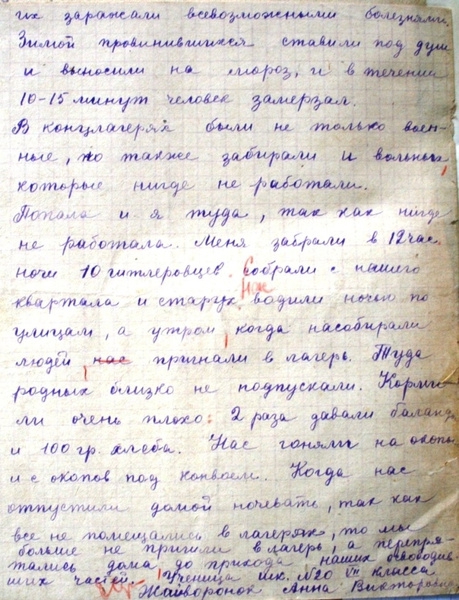 их заражали всевозможными болезнями.
Зимой провинившихся ставили под душ
и выносили на мороз, и в течении
10-15 минут человек замерзал.
В концлагерях были не только воен-
ные, но также забирали и вольных,
которые нигде не работали.
Попала и я туда, так как нигде
не работала. Меня забрали в 12 час.
ночи 10 гитлеровцев. Собрали с нашего
квартала и старух нас водили ночью по
улицам, а утром, когда насобирали
людей, нас пригнали в лагерь. Туда
родных близко не подпускали. Корми-
ли очень плохо: 2 раза давали баланду
и 100 гр. хлеба. Нас гоняли на окопы
и с окопов под конвоем. Когда нас
отпустили домой ночевать, так как
все не помещались в лагерях, то мы
больше не пришли в лагерь, а перепря-
тались дома до прихода наших освободив-
ших частей. Ученица шк. №20 VII класса
Жайворонок Анна Викторовна